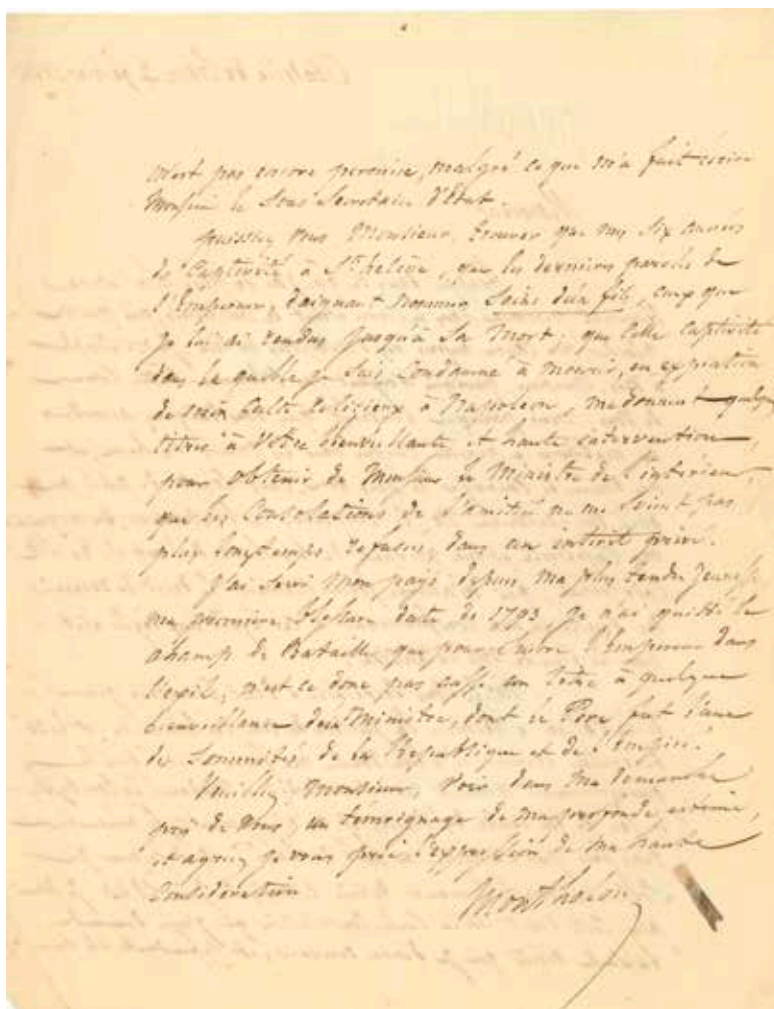 n'est pas encore permise, malgré ce que m'a fait écrire
Monsieur le Sous Secrétaire d'Etat.
Puissiez vous Monsieur, trouver que mes six années
de Captivité à Ste helène, que les dernières paroles de
l'Empereur, daignant nommer soins d'un fils, ceux que
je lui ai rendus jusqu'à sa mort; que cette captivité
dans la quelle je suis Condamné à mourir, en expiation
de mon Culte religieux à Napoléon, me donnent quelques
titres à Votre bienveillante et haute intervention,
pour obtenir de Monsieur le Ministre de l'intérieur,
que les Consolations de l'amitié ne me soient pas
plus longtemps refusées dans un intérêt privé.
J'ai servi mon pays depuis ma plus tendre jeunesse
ma première blessure date de 1793, je n'ai quitté le
champ de Bataille que pour suivre l'Empereur dans
l'exil, n'est ce donc pas aussi un titre à quelque
bienveillance du Ministre, dont le Père fut l'une
des Sommités de la République et de l'Empire.
Veuillez, Monsieur, voir dans ma demande
près de Vous, un témoignage de ma profonde estime,
et agréez je vous prie l'expression de ma haute
Considération
Montholon